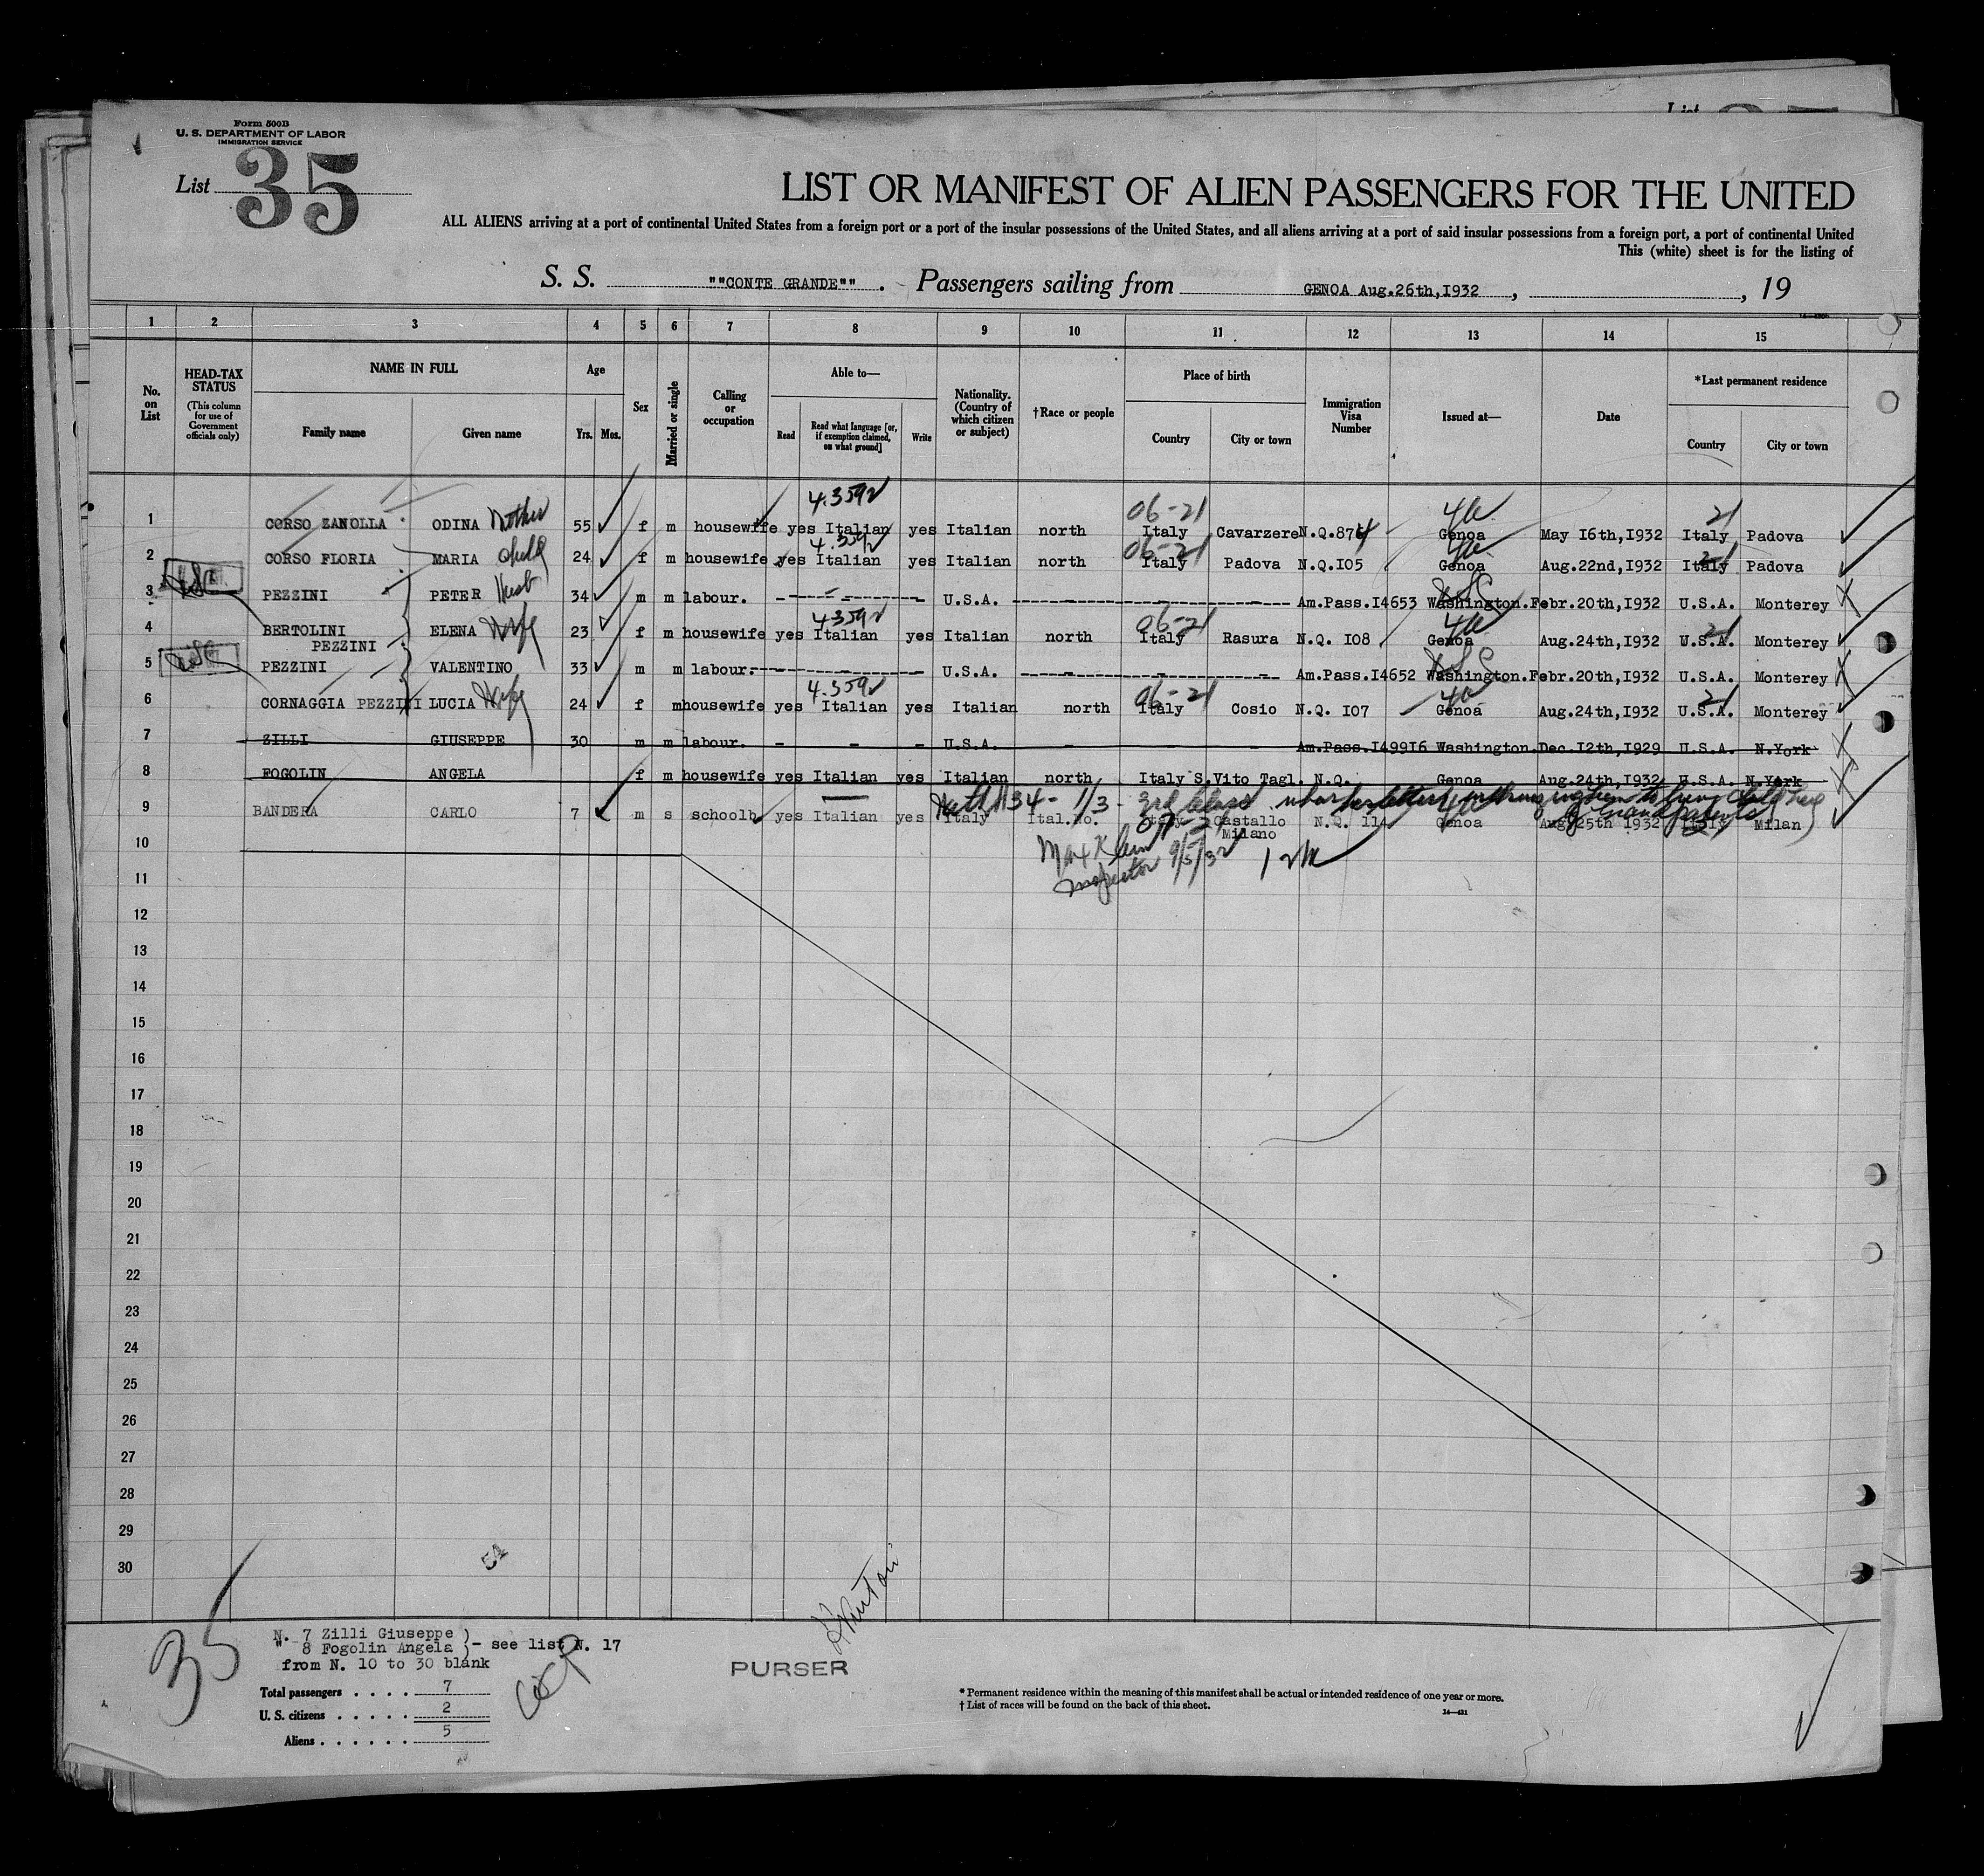 Form 500B
U. S. DEPARTMENT OF LABOR
IMMIGRATION SERVICE
List 35
LIST OR MANIFEST OF ALIEN PASSENGERS FOR THE UNITED
ALL ALIENS arriving at a port of continental United States from a foreign port or a port of the insular possessions of the United States, and all aliens arriving at a port of said insular possessions from a foreign port, a port of continental United
This (white) sheet is for the listing of
S. S. ""CONTE GRANDE"" . Passengers sailing from GENOA Aug.26th,I932 , , 19
1 2 3 4 5 6 7 8 9 10 11 12 13 14 15
No. on List
HEAD-TAX STATUS (This column for use of Government officials only)
NAME IN FULL Family name Given name
Age Yrs. Mos.
Sex
Married or single
Calling or occupation
Able to— Read Read what language [or, if exemption claimed, on what ground] Write
Nationality. (Country of which citizen or subject)
†Race or people
Place of birth Country City or town
Immigration Visa Number
Issued at—
Date
*Last permanent residence Country City or town
4.359 06-21 4a 21
1 CORSO ZANOLLA ODINA Mother 55 f m housewife yes Italian yes Italian north Italy Cavarzere N.Q.87 Genoa May I6th,I932 Italy Padova
4.359 06-21 4a 21
2 CORSO FLORIA MARIA 24 f m housewife yes Italian yes Italian north Italy Padova N.Q.I05 Genoa Aug.22nd,I932 Italy Padova
3 PEZZINI PETER Husb 34 m m labour. U.S.A. Am.Pass.I4653 Washington.Febr.20th,I932 U.S.A. Monterey
4.359 06-21 4a 21
4 BERTOLINI PEZZINI ELENA Wife 23 f m housewife yes Italian yes Italian north Italy Rasura N.Q. I08 Genoa Aug.24th,I932 U.S.A. Monterey
5 PEZZINI VALENTINO 33 m m labour. U.S.A. Am.Pass.I4652 Washington.Febr.20th,I932 U.S.A. Monterey
4.359 06-21 4a 21
6 CORNAGGIA PEZZINI LUCIA Wife 24 f m housewife yes Italian yes Italian north Italy Cosio N.Q. I07 Genoa Aug.24th,I932 U.S.A. Monterey
7 ZILLI GIUSEPPE 30 m m labour. - - - U.S.A. - - - Am.Pass.I499I6 Washington.Dec.I2th,I929 U.S.A. N.York
8 FOGOLIN ANGELA f m housewife yes Italian yes Italian north Italy S.Vito Tagl. N.Q. Genoa Aug.24th,I932 U.S.A. N.York
1/3 - 3rd Class
9 BANDERA CARLO 7 m s schoolb. yes Italian yes Italy Ital.no. Italy Castallo Milano N.Q. 114 Genoa Aug.25th I932 Italy Milan
Max Klein
Inspector 9/5/32
10
11
12
13
14
15
16
17
18
19
20
21
22
23
24
25
26
27
28
29
30
35
N. 7 Zilli Giuseppe )
" 8 Fogolin Angela )- see list N. 17
from N. 10 to 30 blank
Total passengers . . . . 7
U. S. citizens . . . . . 2
Aliens . . . . . . 5
PURSER
* Permanent residence within the meaning of this manifest shall be actual or intended residence of one year or more.
† List of races will be found on the back of this sheet.